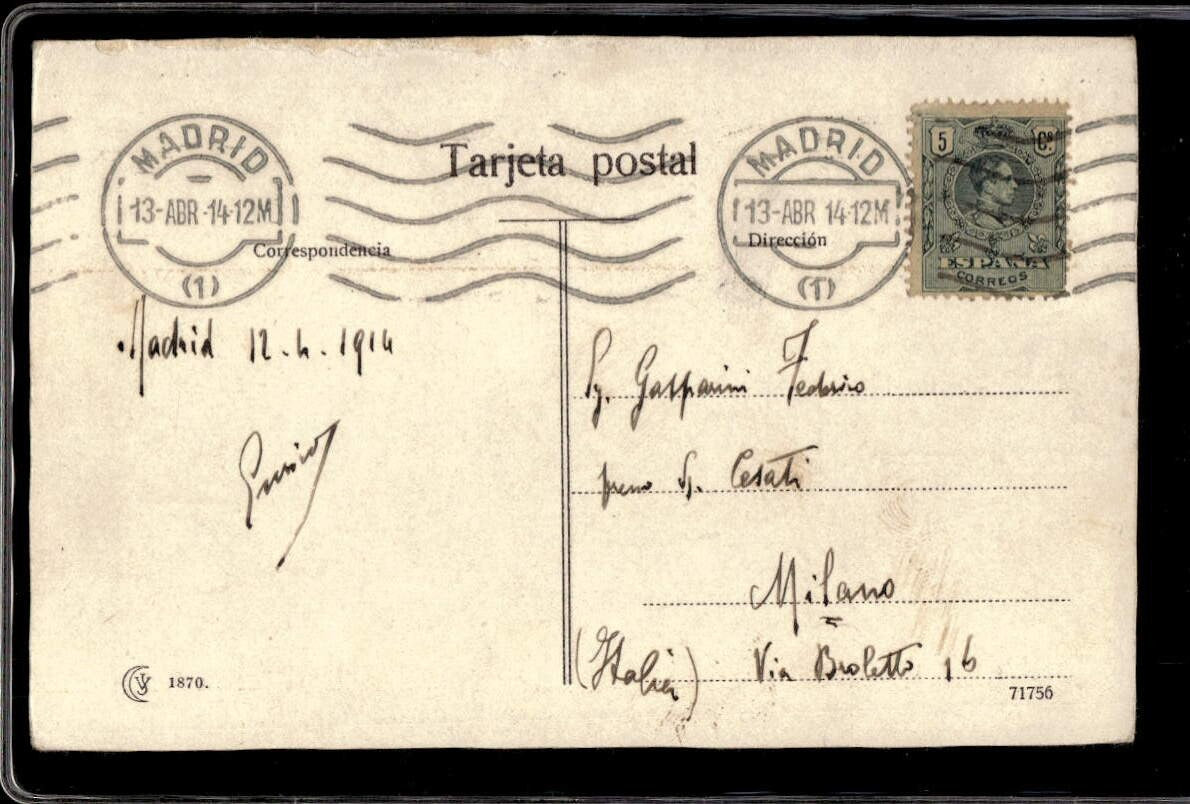 Tarjeta postal
MADRID
13-ABR-14-12M
(1)
MADRID
13-ABR 14-12M
(1)
5 Cs.
ESPAÑA
CORREOS
Correspondencia
Dirección
Madrid 12.4.1914
Enrico
Sg. Gasparini Federico
presso Sg. Cesati
Milano
(Italia) Via Broletto 16
1870.
71756